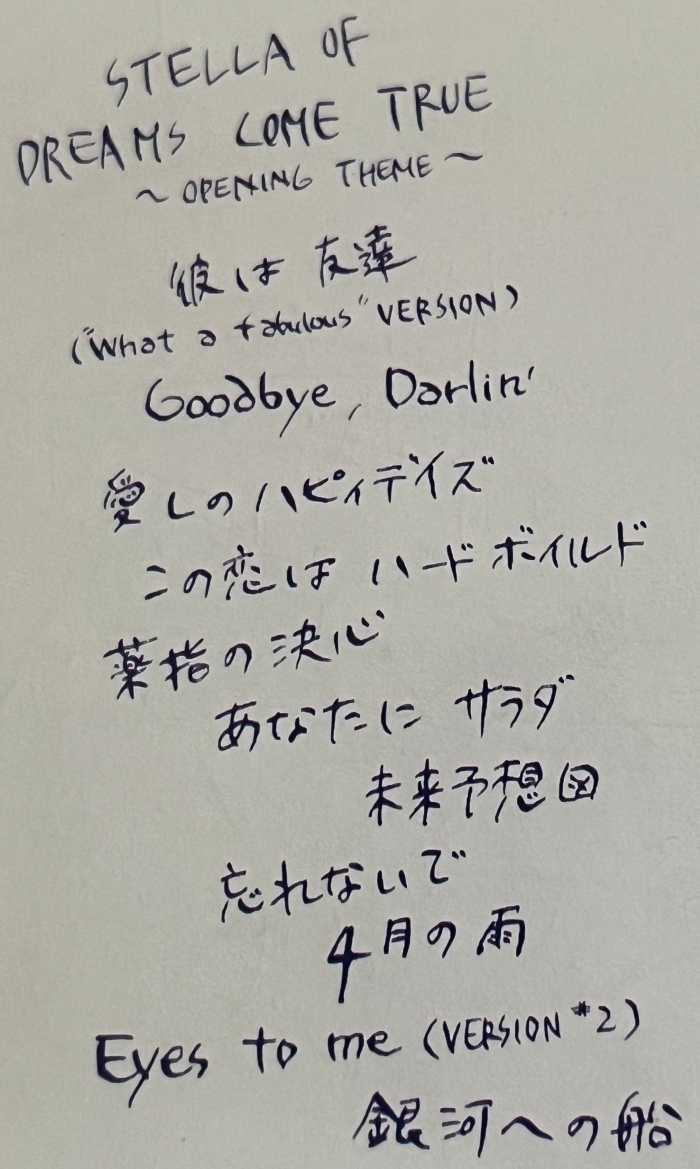 STELLA OF
DREAMS COME TRUE
～ OPENING THEME ～
彼は友達
("What a fabulous" VERSION)
Goodbye, Darlin'
愛しのハピィデイズ
この恋はハードボイルド
薬指の決心
あなたにサラダ
未来予想図
忘れないで
4月の雨
Eyes to me (VERSION #2)
銀河への船